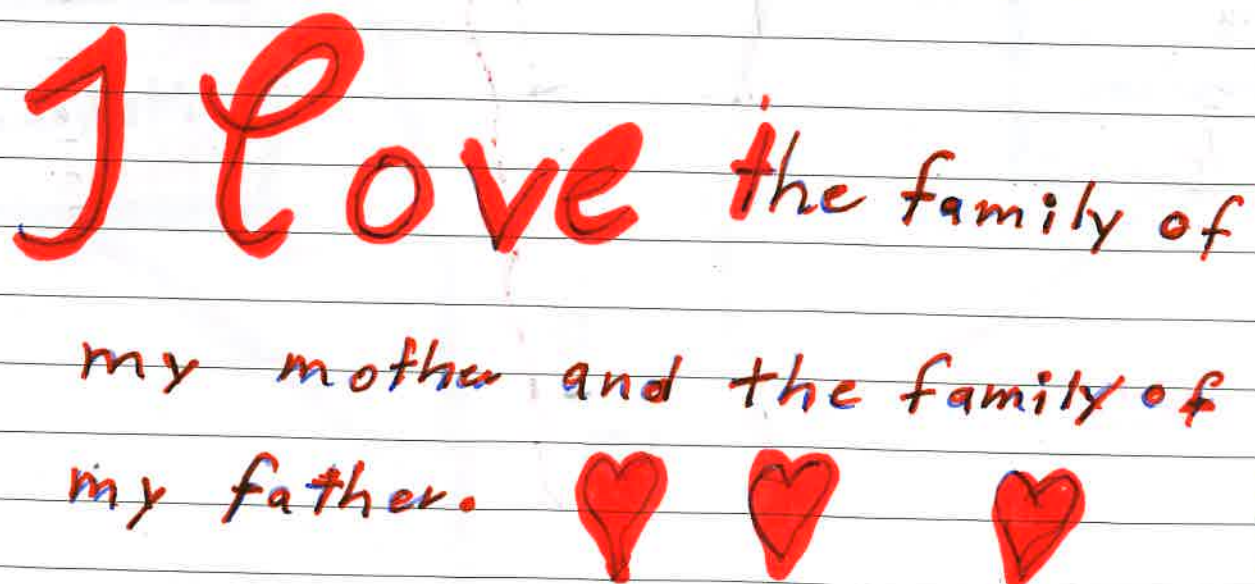 I love the family of
my mother and the family of
my father.